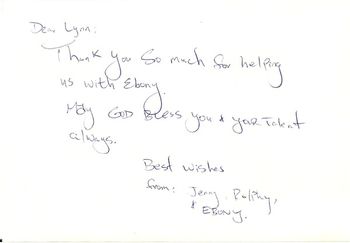 Dear Lynn:
Thank you so much for helping
us with Ebony.
May GOD Bless you & your Talent
always.
Best wishes
from: Jenny,
& EBONY.